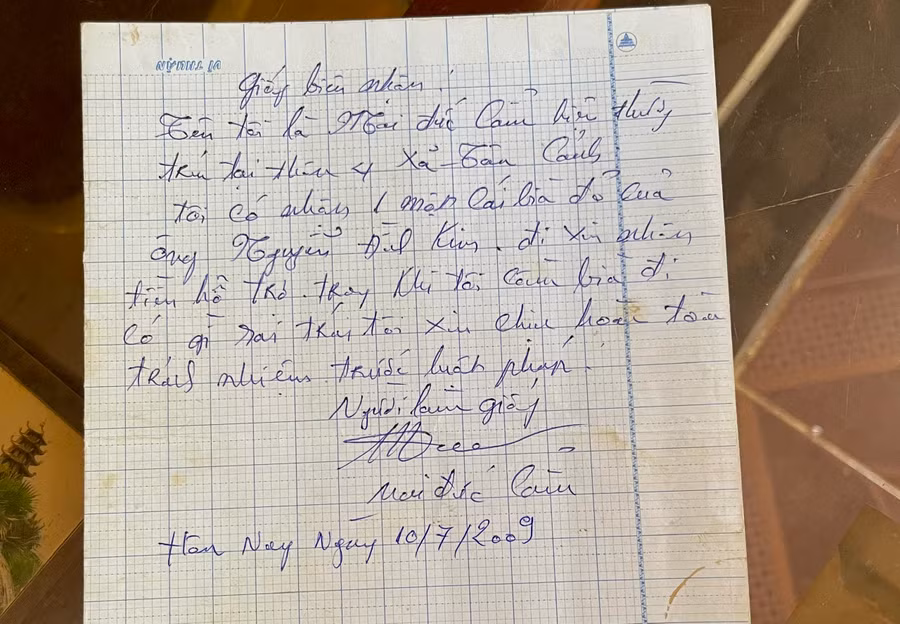 Giấy biên nhận:
Tên tôi là Mai đức Cầm hiện thường
trú tại thôn 4 xã Tân Cảnh
tôi có nhận 1 mận Cái bìa đỏ Của
ông Nguyễn Đình Kim. đi xin nhận
tiền hỗ trợ. trong Khi tôi Cầm bìa đi
Có gì sai trái tôi xin chịu hoàn toàn
trách nhiệm trước luật pháp.
Người làm giấy
Mai đức Cầm
Hôm Nay Ngày 10/7/2009